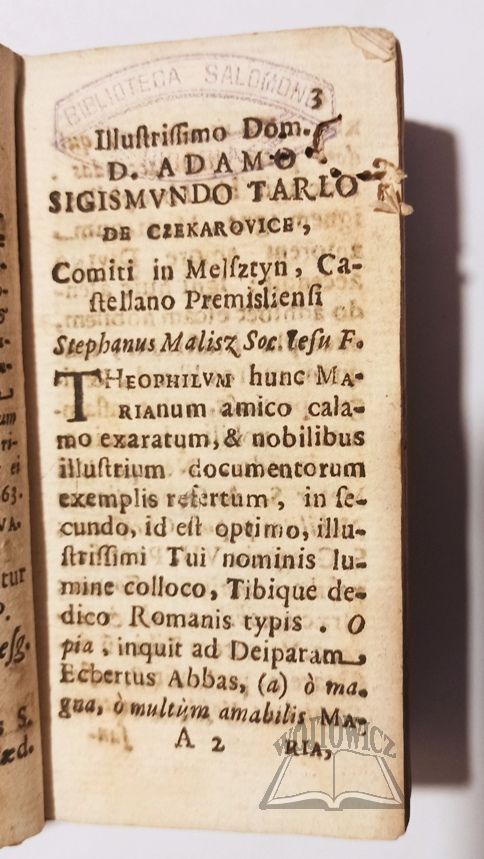 BIBLIOTECA SALOMONE
3
Illuſtriſſimo Dom.
D. ADAMO
SIGISMVNDO TARLO
DE CZEKAROVICE,
Comiti in Melſztyn, Ca-
ſtellano Premiſlienſi
Stephanus Malisz Soc. Ieſu F.
THEOPHILVM hunc MA-
RIAnum amico cala-
mo exaratum, & nobilibus
illuſtrium documentorum
exemplis refertum, in ſe-
cundo, id eſt optimo, illu-
ſtriſſimi Tui nominis lu-
mine colloco, Tibique de-
dico Romanis typis. O
pia, inquit ad Deiparam
Ecbertus Abbas, (a) ò ma-
gna, ò multùm amabilis MA-
A 2 RIA,
WÓJTOWICZ
um
ri-
ei
63.
VA.
tur
P.
eſg.
s S.
æd.